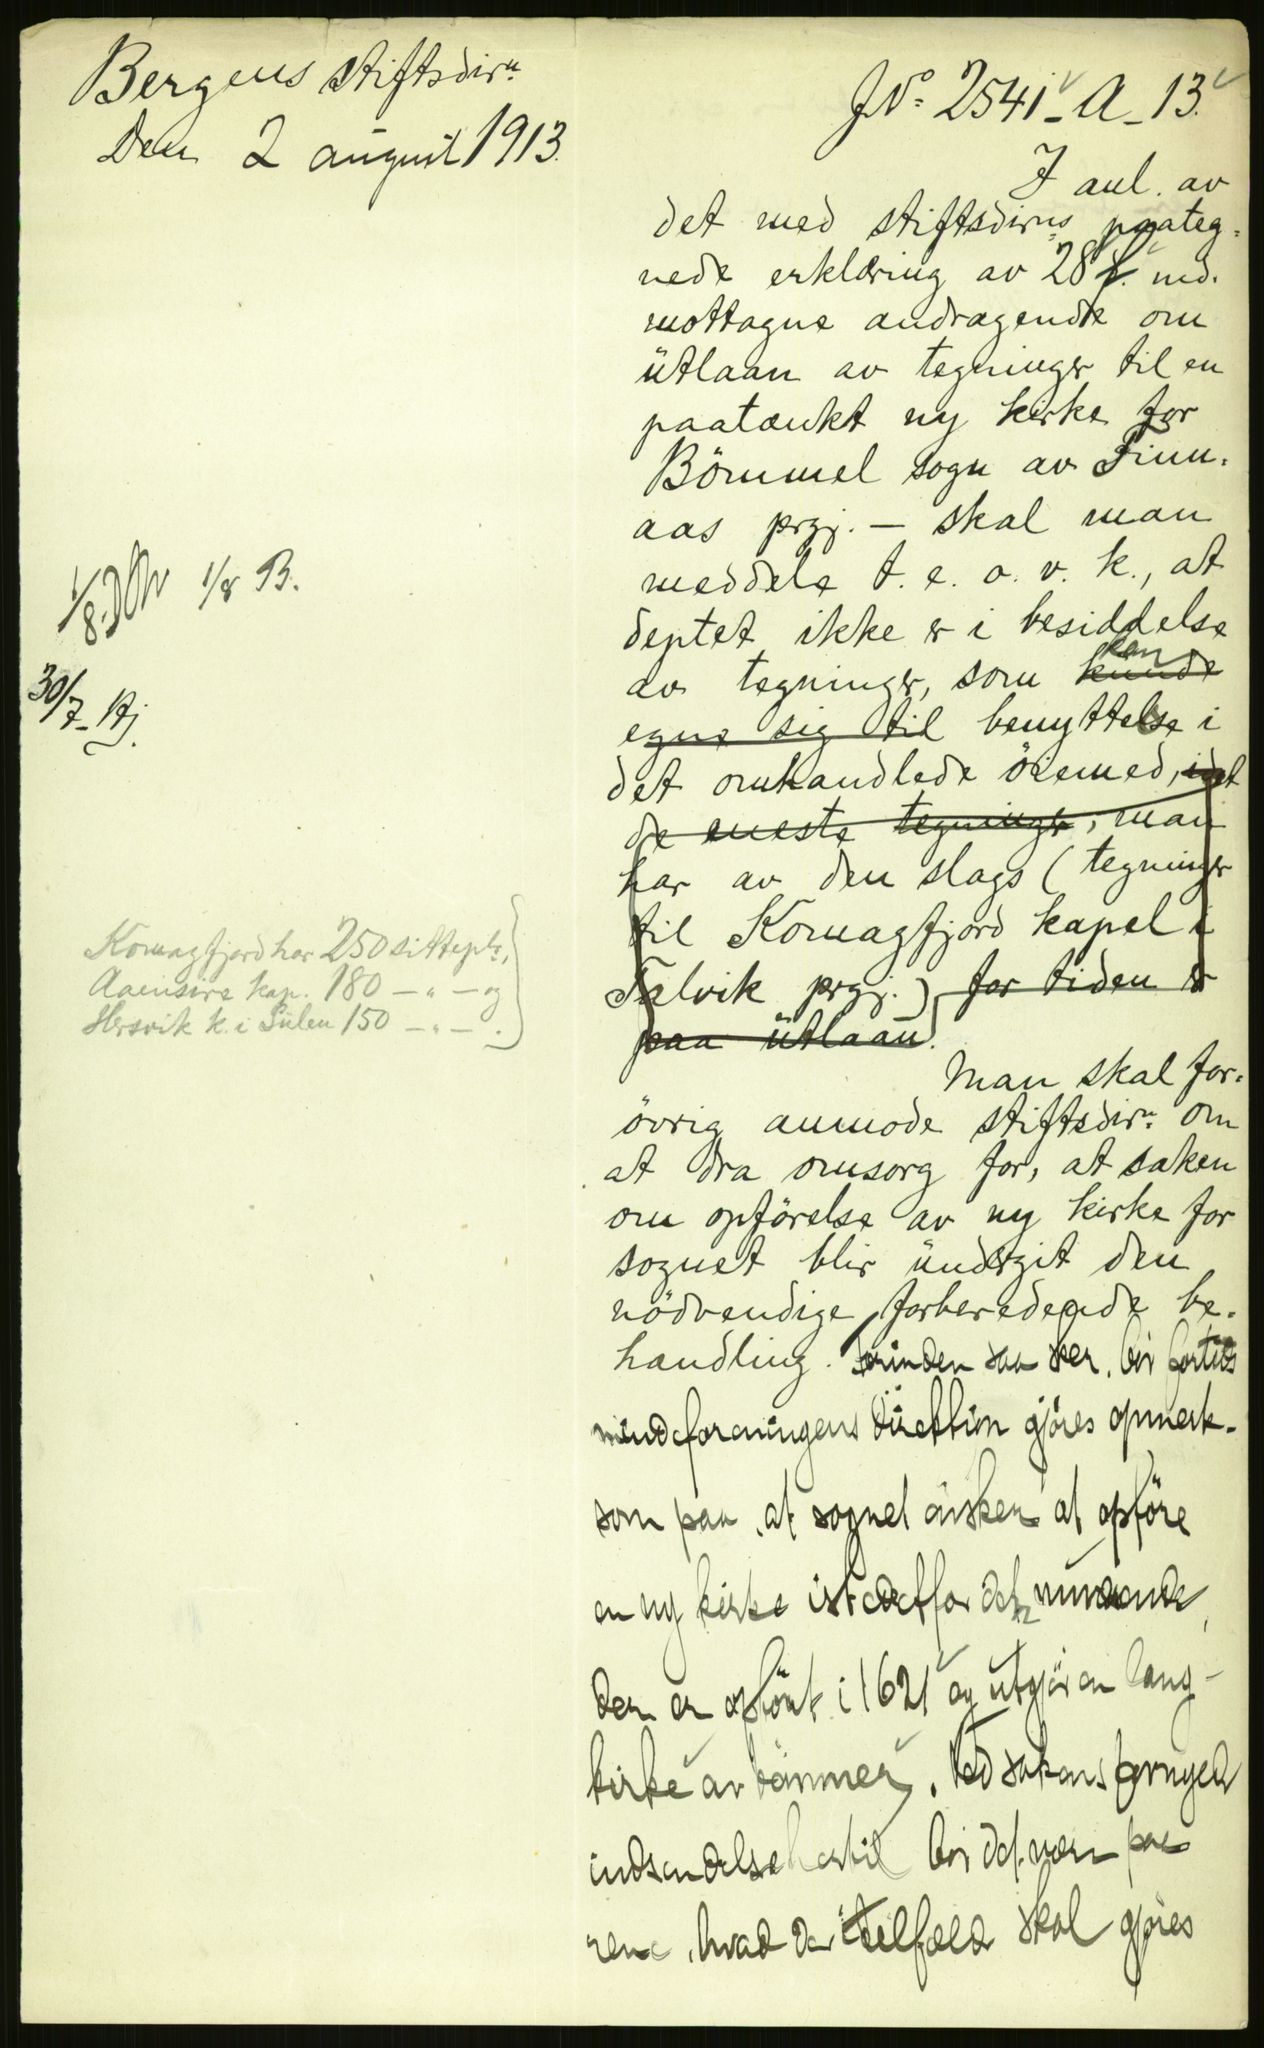 Bergens stiftsdirn
Den 2 august 1913.
JNo 2541 - A - 13.
I anl. av
det med stiftsdirns paateg-
nede erklæring av 28 f. md.
mottagne andragende om
utlaan av tegninger til en
paatænkt ny kirke for
Bömmel sogn av Finn-
aas prgj. — skal man
meddele t. e. o. v. k., at
deptet ikke er i besiddelse
av tegninger, som kunde kan
egne sig til benyttelse i
det omhandlede öiemed, idet
de eneste tegninger, man
har av den slags (tegninger
til Komagfjord kapel i
Talvik prgj.) for tiden er
paa utlaan.
Man skal for-
övrig anmode stiftsdirn om
at dra omsorg for, at saken
om opförelse av ny kirke for
sognet blir undergit den
nödvendige forberedende be-
handling. Forinden saa sker, bör fortids
mindeforeningens direktion gjöres opmerk-
som paa, at sognet önsker at opföre
en ny kirke istedetfor den nuværende,
der er opfört i 1621 og utgjör en lang-
kirke av tömmer. Ved sakens fornyede
indsendelse hertil bör det være paa
rene, hvad der i tilfælde skal gjöres
1/8 1/8 B.
30/7 Hj.
Komagfjord har 250 sittepl.,
Aaensire kap. 180 — " — og
Hersvik k. i Sulen 150 — " — .